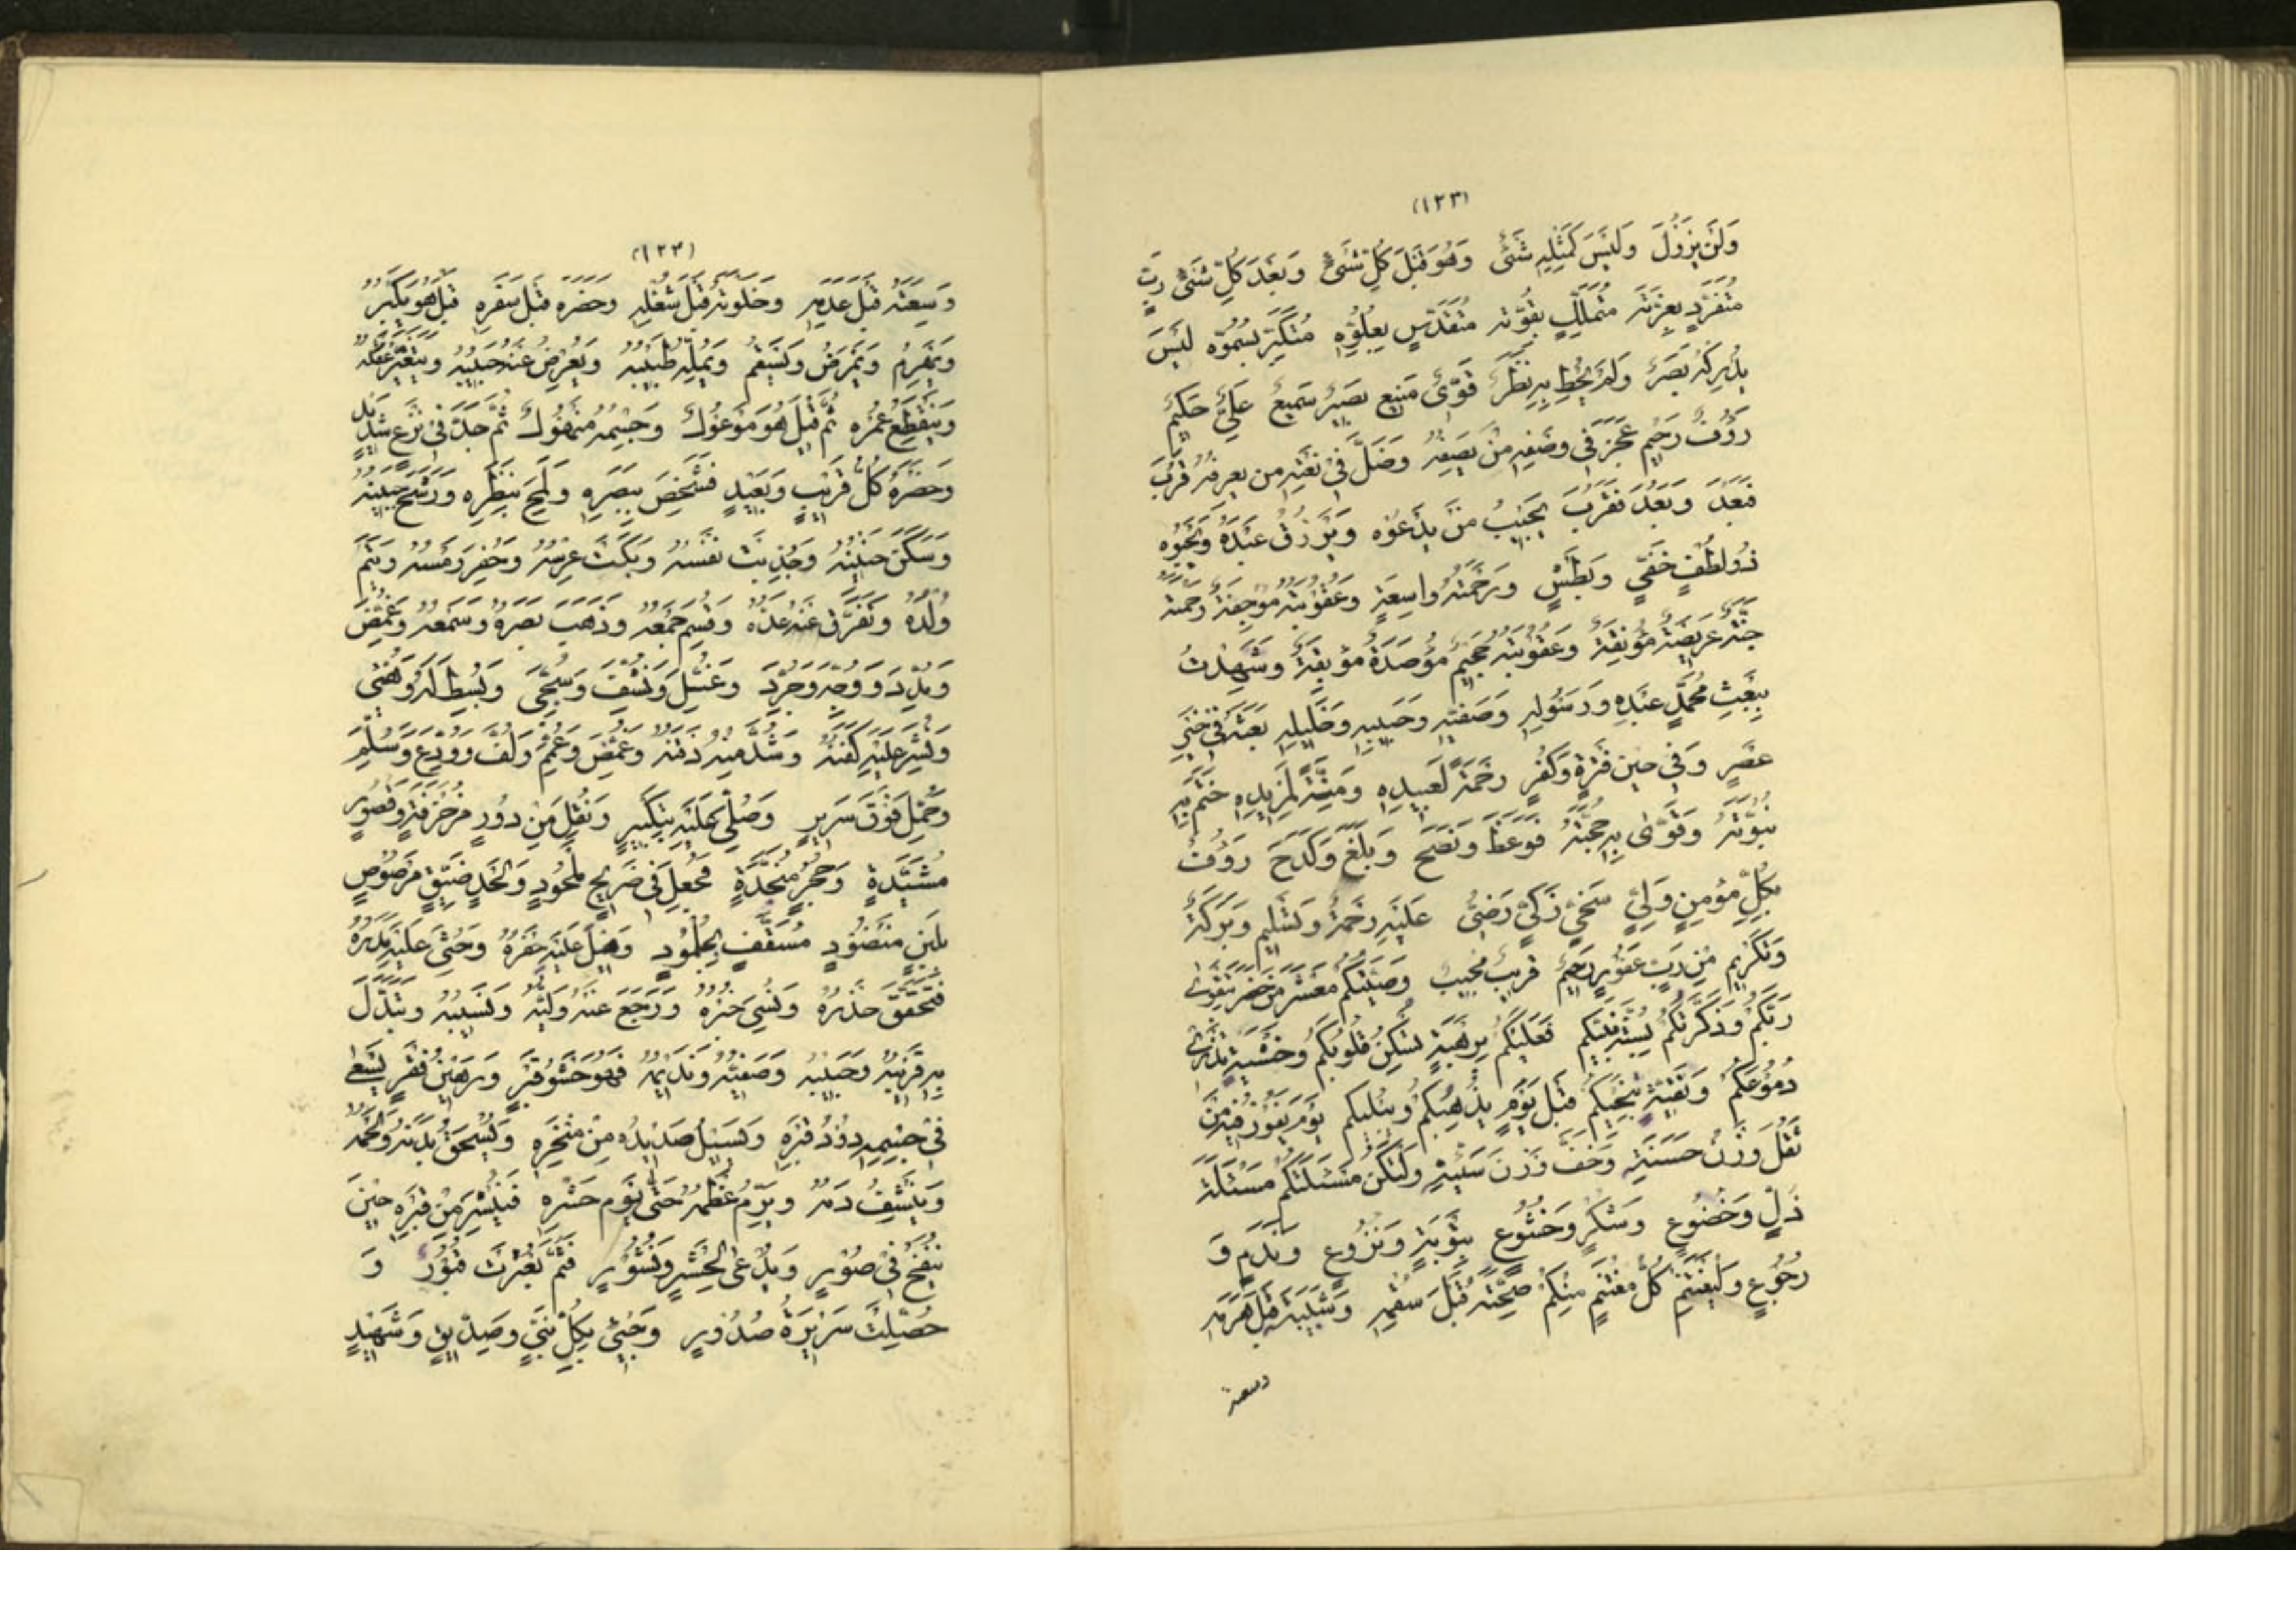 (١٢٣)
وَلَنْ يَزُولَ وَلَيْسَ كَمِثْلِهِ شَىْءٌ وَهُوَ قَبْلَ كُلِّ شَىْءٍ وَبَعْدَ كُلِّ شَىْءٍ رَبٌّ
مُتَفَرِّدٍ بِعِزَّتِهِ مُتَمَلِّكٍ بِقُوَّتِهِ مُتَقَدِّسٍ بِعُلُوِّهِ مُتَكَبِّرٍ بِسُمُوِّهِ لَيْسَ
يُدْرِكُهُ بَصَرٌ وَلَمْ يُحِطْ بِهِ نَظَرٌ قَوِىٌّ مَنِيعٌ بَصِيرٌ سَمِيعٌ عَلِىٌّ حَكِيمٌ
رَؤُفٌ رَحِيمٌ عَجَزَ فِى وَصْفِهِ مَنْ يَصِفُهُ وَضَلَّ فِى نَعْتِهِ مَنْ يَعْرِفُهُ قَرُبَ
فَبَعُدَ وَبَعُدَ فَقَرُبَ يُجِيبُ مَنْ يَدْعُوهُ وَيَرْزُقُ عَبْدَهُ وَيَحْبُوهُ
ذُو لُطْفٍ خَفِىٍّ وَبَطْشٍ وَرَحْمَتُهُ وَاسِعَةٍ وَعُقُوبَتُهُ مُوجِعَةٌ رَحْمَتُهُ
جَنَّةٌ عَرِيضَةٌ مُؤْنِقَةٌ وَعُقُوبَتُهُ جَحِيمٌ مُؤْصَدَةٌ مُوبِقَةٌ وَشَهِدْتُ
بِبَعْثِ مُحَمَّدٍ عَبْدِهِ وَرَسُولِهِ وَصَفِيِّهِ وَحَبِيبِهِ وَخَلِيلِهِ بَعَثَهُ فِى خَيْرِ
عَصْرٍ وَفِى حِينِ فَتْرَةٍ وَكُفْرٍ رَحْمَةً لِعَبِيدِهِ وَمِنَّةً لِمَزِيدِهِ خَتَمَ بِهِ
نُبُوَّتَهُ وَقَوَّى بِهِ حُجَّتَهُ فَوَعَظَ وَنَصَحَ وَبَلَّغَ وَكَدَحَ رَؤُفٌ
بِكُلِّ مُؤْمِنٍ وَلِىٌّ سَخِىٌّ زَكِىٌّ رَضِىٌّ عَلَيْهِ رَحْمَةٌ وَتَسْلِيمٌ وَبَرَكَةٌ
وَتَكْرِيمٌ مِنْ رَبٍّ غَفُورٍ رَحِيمٌ قَرِيبٌ مُجِيبٌ وَصِيَّتُكُمْ مَعْشَرَ مَنْ حَضَرَ بِتَقْوَى
رَبِّكُمْ وَذَكَّرْتُكُمْ بِسُنَّةِ نَبِيِّكُمْ فَعَلَيْكُمْ بِرَهْبَةٍ تَسْكُنُ قُلُوبَكُمْ وَخَشْيَةٍ تُذْرِى
دُمُوعَكُمْ وَتَقِيَّةٍ تُنْجِيكُمْ قَبْلَ يَوْمٍ يُذْهِلُكُمْ وَيُبْلِيكُمْ يَوْمَ يَفُوزُ فِيهِ مَنْ
ثَقُلَ وَزْنُ حَسَنَتِهِ وَخَفَّ وَزْنُ سَيِّئَتِهِ وَلْتَكُنْ مَسْئَلَتُكُمْ مَسْئَلَةَ
ذُلٍّ وَخُضُوعٍ وَشُكْرٍ وَخُشُوعٍ بِتَوْبَةٍ وَنُزُوعٍ وَنَدَمٍ وَ
رُجُوعٍ وَلْيَغْتَنِمْ كُلُّ مُغْتَنِمٍ مِنْكُمْ صِحَّتَهُ قَبْلَ سُقْمِهِ وَشَبِيبَتَهُ قَبْلَ هَرَمِهِ
وسعته
(١٢٣)
وَسِعَتَهُ قَبْلَ عَدَمِهِ وَخَلْوَتَهُ قَبْلَ شُغْلِهِ وَحَضَرَهُ قَبْلَ سَفَرِهِ قَبْلَ هُوَ يَكْبَرُ
وَيَهْرَمُ وَيَمْرَضُ وَيَسْقَمُ وَيَمَلُّهُ طَبِيبُهُ وَيُعْرِضُ عَنْهُ حَبِيبُهُ وَيَتَغَيَّرُ عَقْلُهُ
وَيَنْقَطِعُ عُمْرُهُ ثُمَّ قِيلَ هُوَ مَوْعُوكٌ وَجِسْمُهُ مَنْهُوكٌ ثُمَّ جَدَّ فِى نَزْعٍ شَدِيدٍ
وَحَضَرَهُ كُلُّ قَرِيبٍ وَبَعِيدٍ فَشَخَصَ بِبَصَرِهِ وَلَمَحَ بِنَظَرِهِ وَرَشَحَ جَبِينُهُ
وَسَكَنَ حَنِينُهُ وَجُذِبَتْ نَفْسُهُ وَبَكَتْ عِرْسُهُ وَحُفِرَ رَمْسُهُ وَيُتِّمَ
وُلْدُهُ وَتَفَرَّقَ عَنْهُ عَدَدُهُ وَقُسِمَ جَمْعُهُ وَذَهَبَ بَصَرُهُ وَسَمْعُهُ وَغُمِّضَ
وَمُدِّدَ وَوُجِّهَ وَجُرِّدَ وَغُسِّلَ وَنُشِّفَ وَسُجِّىَ وَبُسِطَ لَهُ وَهُيِّئَ
وَنُشِرَ عَلَيْهِ كَفَنُهُ وَشُدَّ مِنْهُ ذَقَنُهُ وَغُمِّضَ وَعُمِّمَ وَلُفَّ وَوُدِّعَ وَسُلِّمَ
وَحُمِلَ فَوْقَ سَرِيرٍ وَصُلِّىَ عَلَيْهِ بِتَكْبِيرٍ وَنُقِلَ مِنْ دُورٍ مُزَخْرَفَةٍ وَقُصُورٍ
مُشَيَّدَةٍ وَحُجَرٍ مُنَجَّدَةٍ فَجُعِلَ فِى ضَرِيحٍ مَلْحُودٍ وَلَحْدٍ ضَيِّقٍ مَرْصُوصٍ
بِلَبِنٍ مَنْضُودٍ مُسَقَّفٍ بِجُلْمُودٍ وَهِيلَ عَلَيْهِ حَفْرُهُ وَحُثِىَ عَلَيْهِ مَدَرُهُ
فَتَحَقَّقَ حَذَرُهُ وَنُسِىَ خَبَرُهُ وَرَجَعَ عَنْهُ وَلِيُّهُ وَنَسِيبُهُ وَتَبَدَّلَ
بِهِ قَرِينُهُ وَحَبِيبُهُ وَصَفِيُّهُ وَنَدِيمُهُ فَهُوَ حَشْوُ قَبْرٍ وَرَهِينُ قَفْرٍ يَسْعَى
فِى جِسْمِهِ دُودُ قَبْرِهِ وَيَسِيلُ صَدِيدُهُ مِنْ مَنْخَرِهِ وَيُسْحَقُ بَدَنُهُ وَلَحْمُهُ
وَيُنَشَّفُ دَمُهُ وَيُرَمُّ عَظْمُهُ حَتَّى يَوْمِ حَشْرِهِ فَيُنْشَرُ مِنْ قَبْرِهِ حِينَ
يُنْفَخُ فِى صُورٍ وَيُدْعَى لِحَشْرٍ وَنُشُورٍ فَثَمَّ بُعْثِرَتْ قُبُورٌ وَ
حُصِّلَتْ سَرِيرَةُ صُدُورٍ وَجِىءَ بِكُلِّ نَبِىٍّ وَصِدِّيقٍ وَشَهِيدٍ